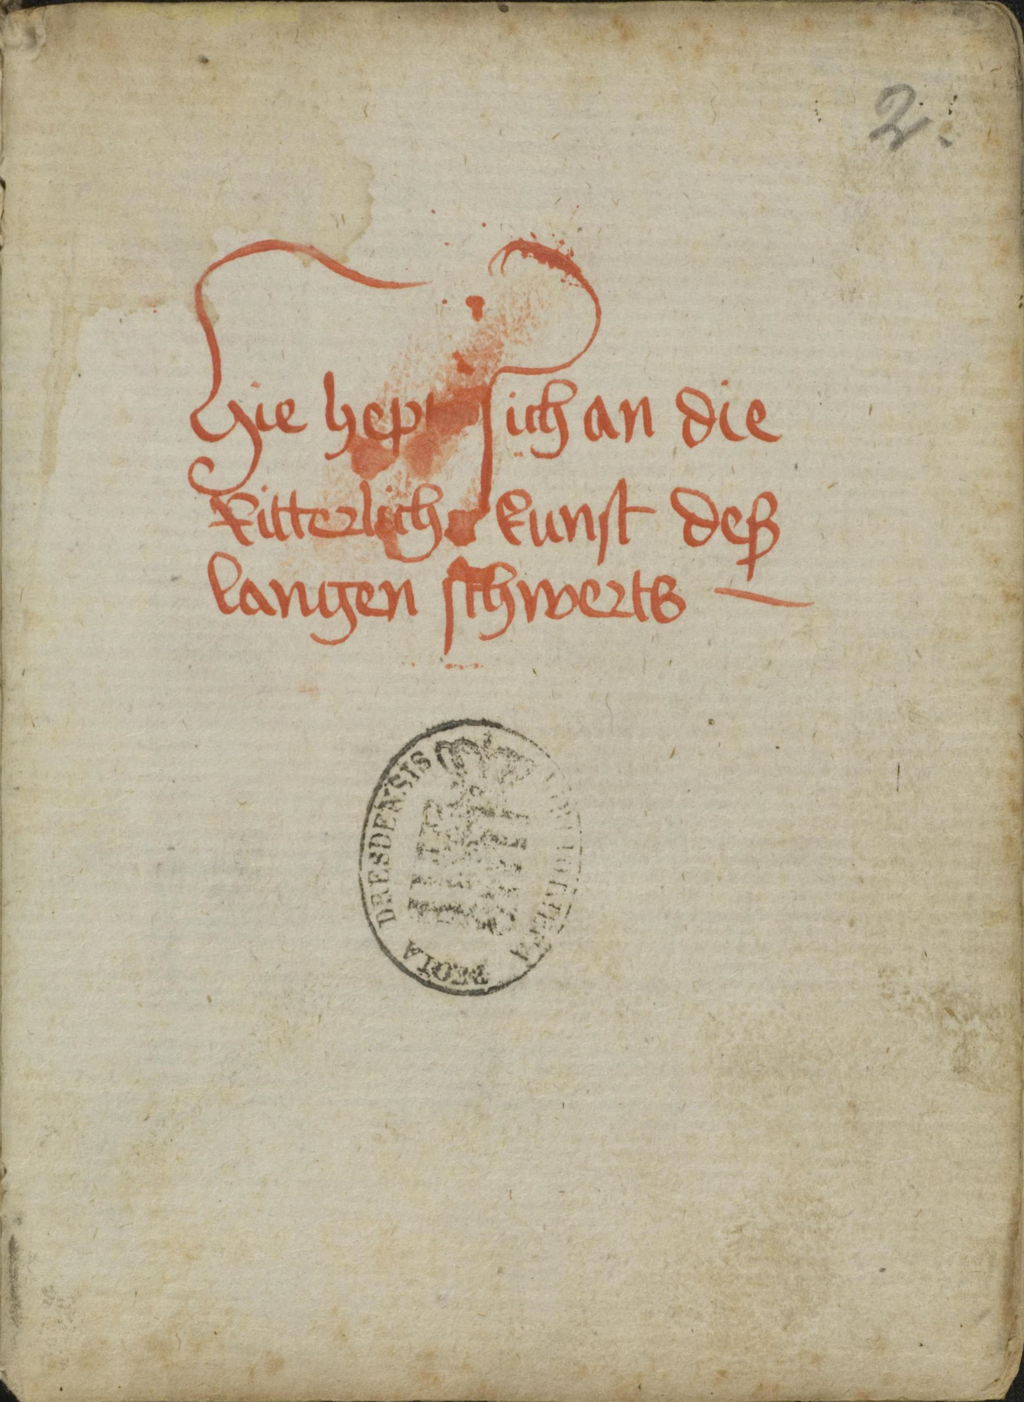 2.
Hie hept sich an die
Ritterlich kunst deß
langen schwerts
BIBLIOTHECA REGIA DRESDENSIS